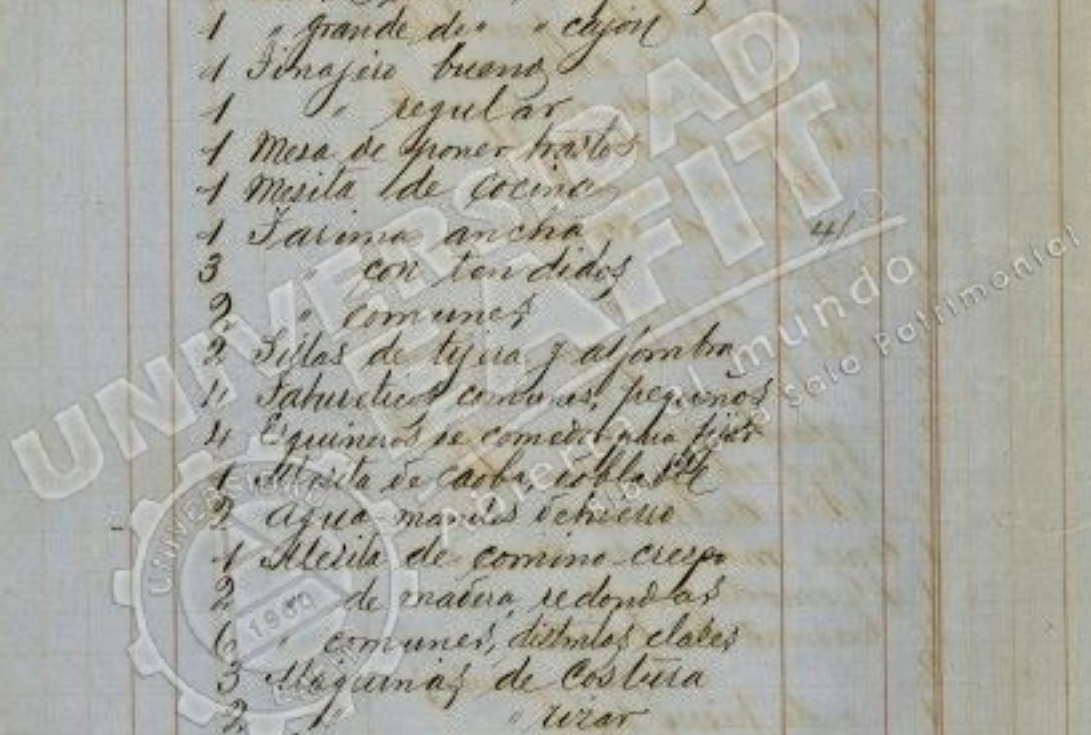 1 " grande de " " cajón
1 Tinajero bueno
1 " regular
1 Mesa de poner trastos
1 Mesita de cocina
1 Tarima ancha 4/
3 " con tendidos
2 " comunes
2 Sillas de tijera y alfombra
4 Taburetes comunes, pequeños
4 Esquineros de comedor para fijar
1 Mesita de caoba, doblable
2 Agua-maniles de hierro
1 Mesita de comino crespo
2 " de madera, redondas
6 " comunes, distintas clases
3 Máquinas de costura
2 " " rizar
UNIVERSIDAD
EAFIT
Abierta al mundo
Sala Patrimonial
UNIVERSIDAD
1960